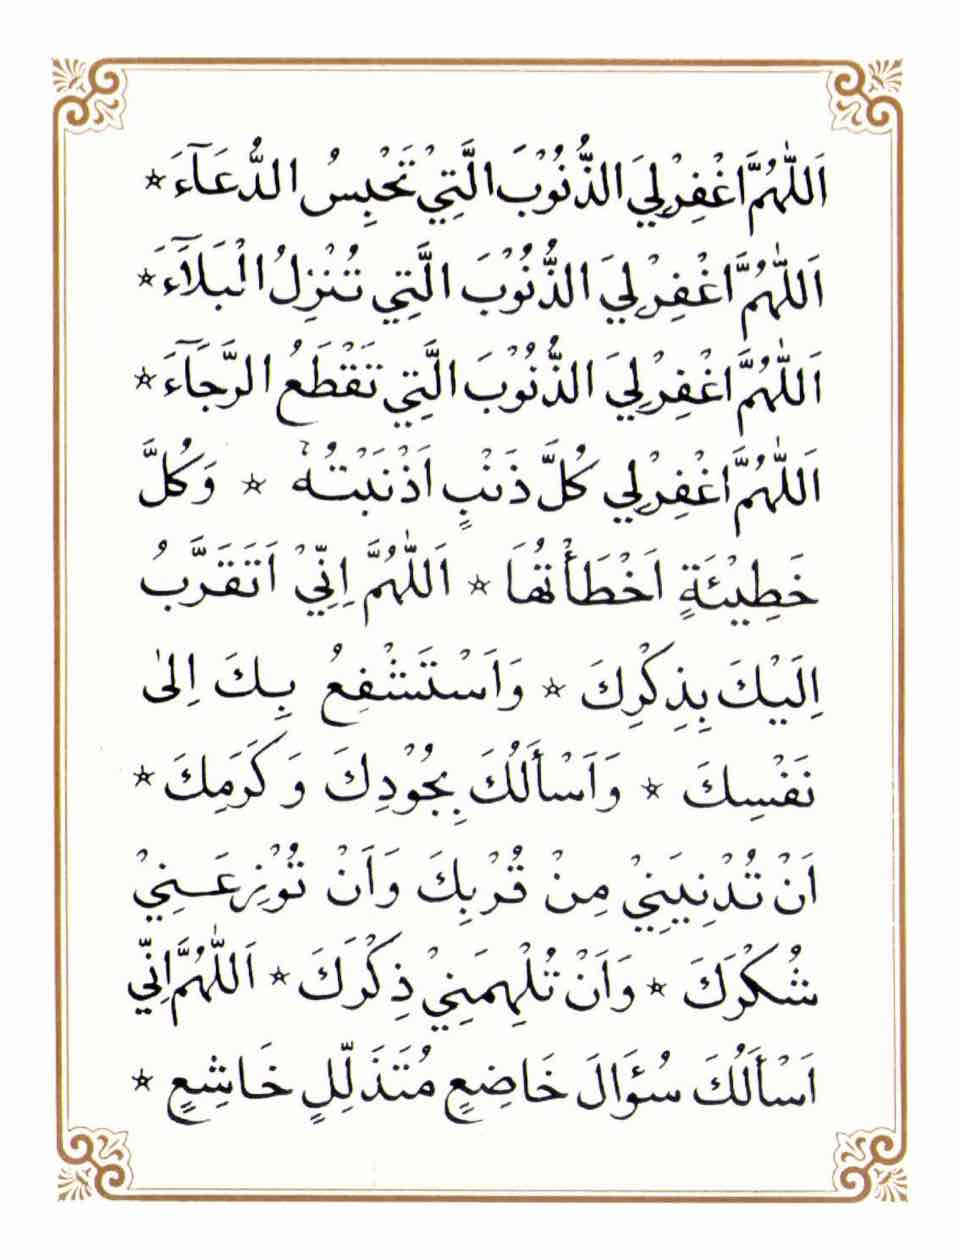 اَللّٰهُمَّ اغْفِرْ لِيَ الذُّنُوْبَ الَّتِيْ تَحْبِسُ الدُّعَآءَ ☆
اَللّٰهُمَّ اغْفِرْ لِيَ الذُّنُوْبَ الَّتِي تُنْزِلُ الْبَلَآءَ ☆
اَللّٰهُمَّ اغْفِرْ لِيَ الذُّنُوْبَ الَّتِي تَقْطَعُ الرَّجَآءَ ☆
اَللّٰهُمَّ اغْفِرْ لِي كُلَّ ذَنْبٍ اَذْنَبْتُهُ ☆ وَكُلَّ
خَطِيْئَةٍ اَخْطَأْتُهَا ☆ اَللّٰهُمَّ اِنِّيْ اَتَقَرَّبُ
اِلَيْكَ بِذِكْرِكَ ☆ وَاَسْتَشْفِعُ بِكَ اِلىٰ
نَفْسِكَ ☆ وَاَسْأَلُكَ بِجُوْدِكَ وَكَرَمِكَ ☆
اَنْ تُدْنِيَنِيْ مِنْ قُرْبِكَ وَاَنْ تُوْزِعَنِيْ
شُكْرَكَ ☆ وَاَنْ تُلْهِمَنِيْ ذِكْرَكَ ☆ اَللّٰهُمَّ اِنِّيْ
اَسْأَلُكَ سُؤَالَ خَاضِعٍ مُتَذَلِّلٍ خَاشِعٍ ☆